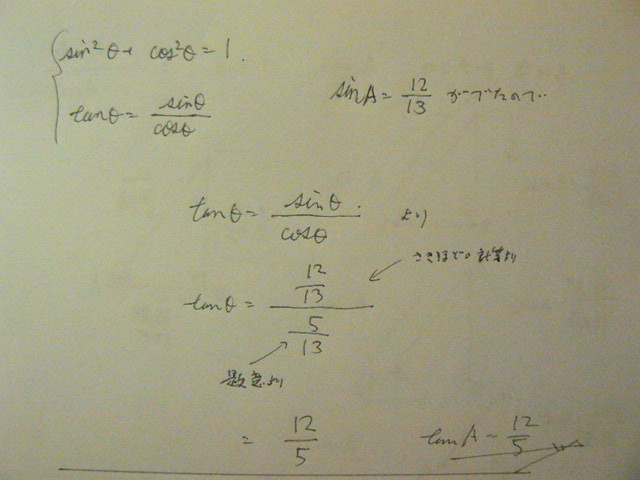 sin²θ + cos²θ = 1.
tanθ = sinθ/cosθ
sinA = 12/13 がでたので
tanθ = sinθ/cosθ より
さきほどの計算より
tanθ = (12/13)/(5/13)
題意より
= 12/5
tanA = 12/5